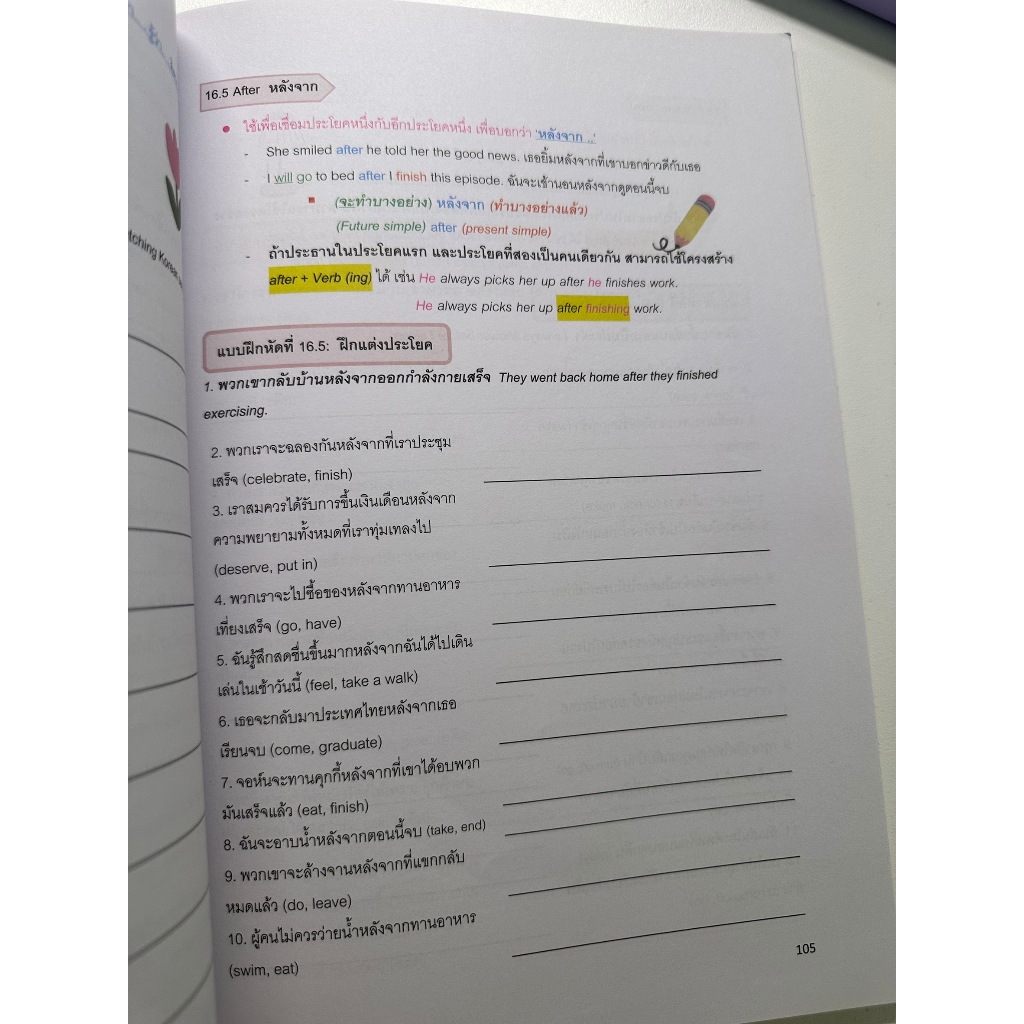 16.5 After หลังจาก
• ใช้เพื่อเชื่อมประโยคหนึ่งกับอีกประโยคหนึ่ง เพื่อบอกว่า 'หลังจาก ..'
- She smiled after he told her the good news. เธอยิ้มหลังจากที่เขาบอกข่าวดีกับเธอ
- I will go to bed after I finish this episode. ฉันจะเข้านอนหลังจากดูตอนนี้จบ
▪ (จะทำบางอย่าง) หลังจาก (ทำบางอย่างแล้ว)
(Future simple) after (present simple)
- ถ้าประธานในประโยคแรก และประโยคที่สองเป็นคนเดียวกัน สามารถใช้โครงสร้าง
after + Verb (ing) ได้ เช่น He always picks her up after he finishes work.
He always picks her up after finishing work.
tching Korean
แบบฝึกหัดที่ 16.5: ฝึกแต่งประโยค
1. พวกเขากลับบ้านหลังจากออกกำลังกายเสร็จ They went back home after they finished
exercising.
2. พวกเราจะฉลองกันหลังจากที่เราประชุม
เสร็จ (celebrate, finish)
3. เราสมควรได้รับการขึ้นเงินเดือนหลังจาก
ความพยายามทั้งหมดที่เราทุ่มเทลงไป
(deserve, put in)
4. พวกเราจะไปซื้อของหลังจากทานอาหาร
เที่ยงเสร็จ (go, have)
5. ฉันรู้สึกสดชื่นขึ้นมากหลังจากฉันได้ไปเดิน
เล่นในเช้าวันนี้ (feel, take a walk)
6. เธอจะกลับมาประเทศไทยหลังจากเธอ
เรียนจบ (come, graduate)
7. จอห์นจะทานคุกกี้หลังจากที่เขาได้อบพวก
มันเสร็จแล้ว (eat, finish)
8. ฉันจะอาบน้ำหลังจากตอนนี้จบ (take, end)
9. พวกเขาจะล้างจานหลังจากที่แขกกลับ
หมดแล้ว (do, leave)
10. ผู้คนไม่ควรว่ายน้ำหลังจากทานอาหาร
(swim, eat)
105